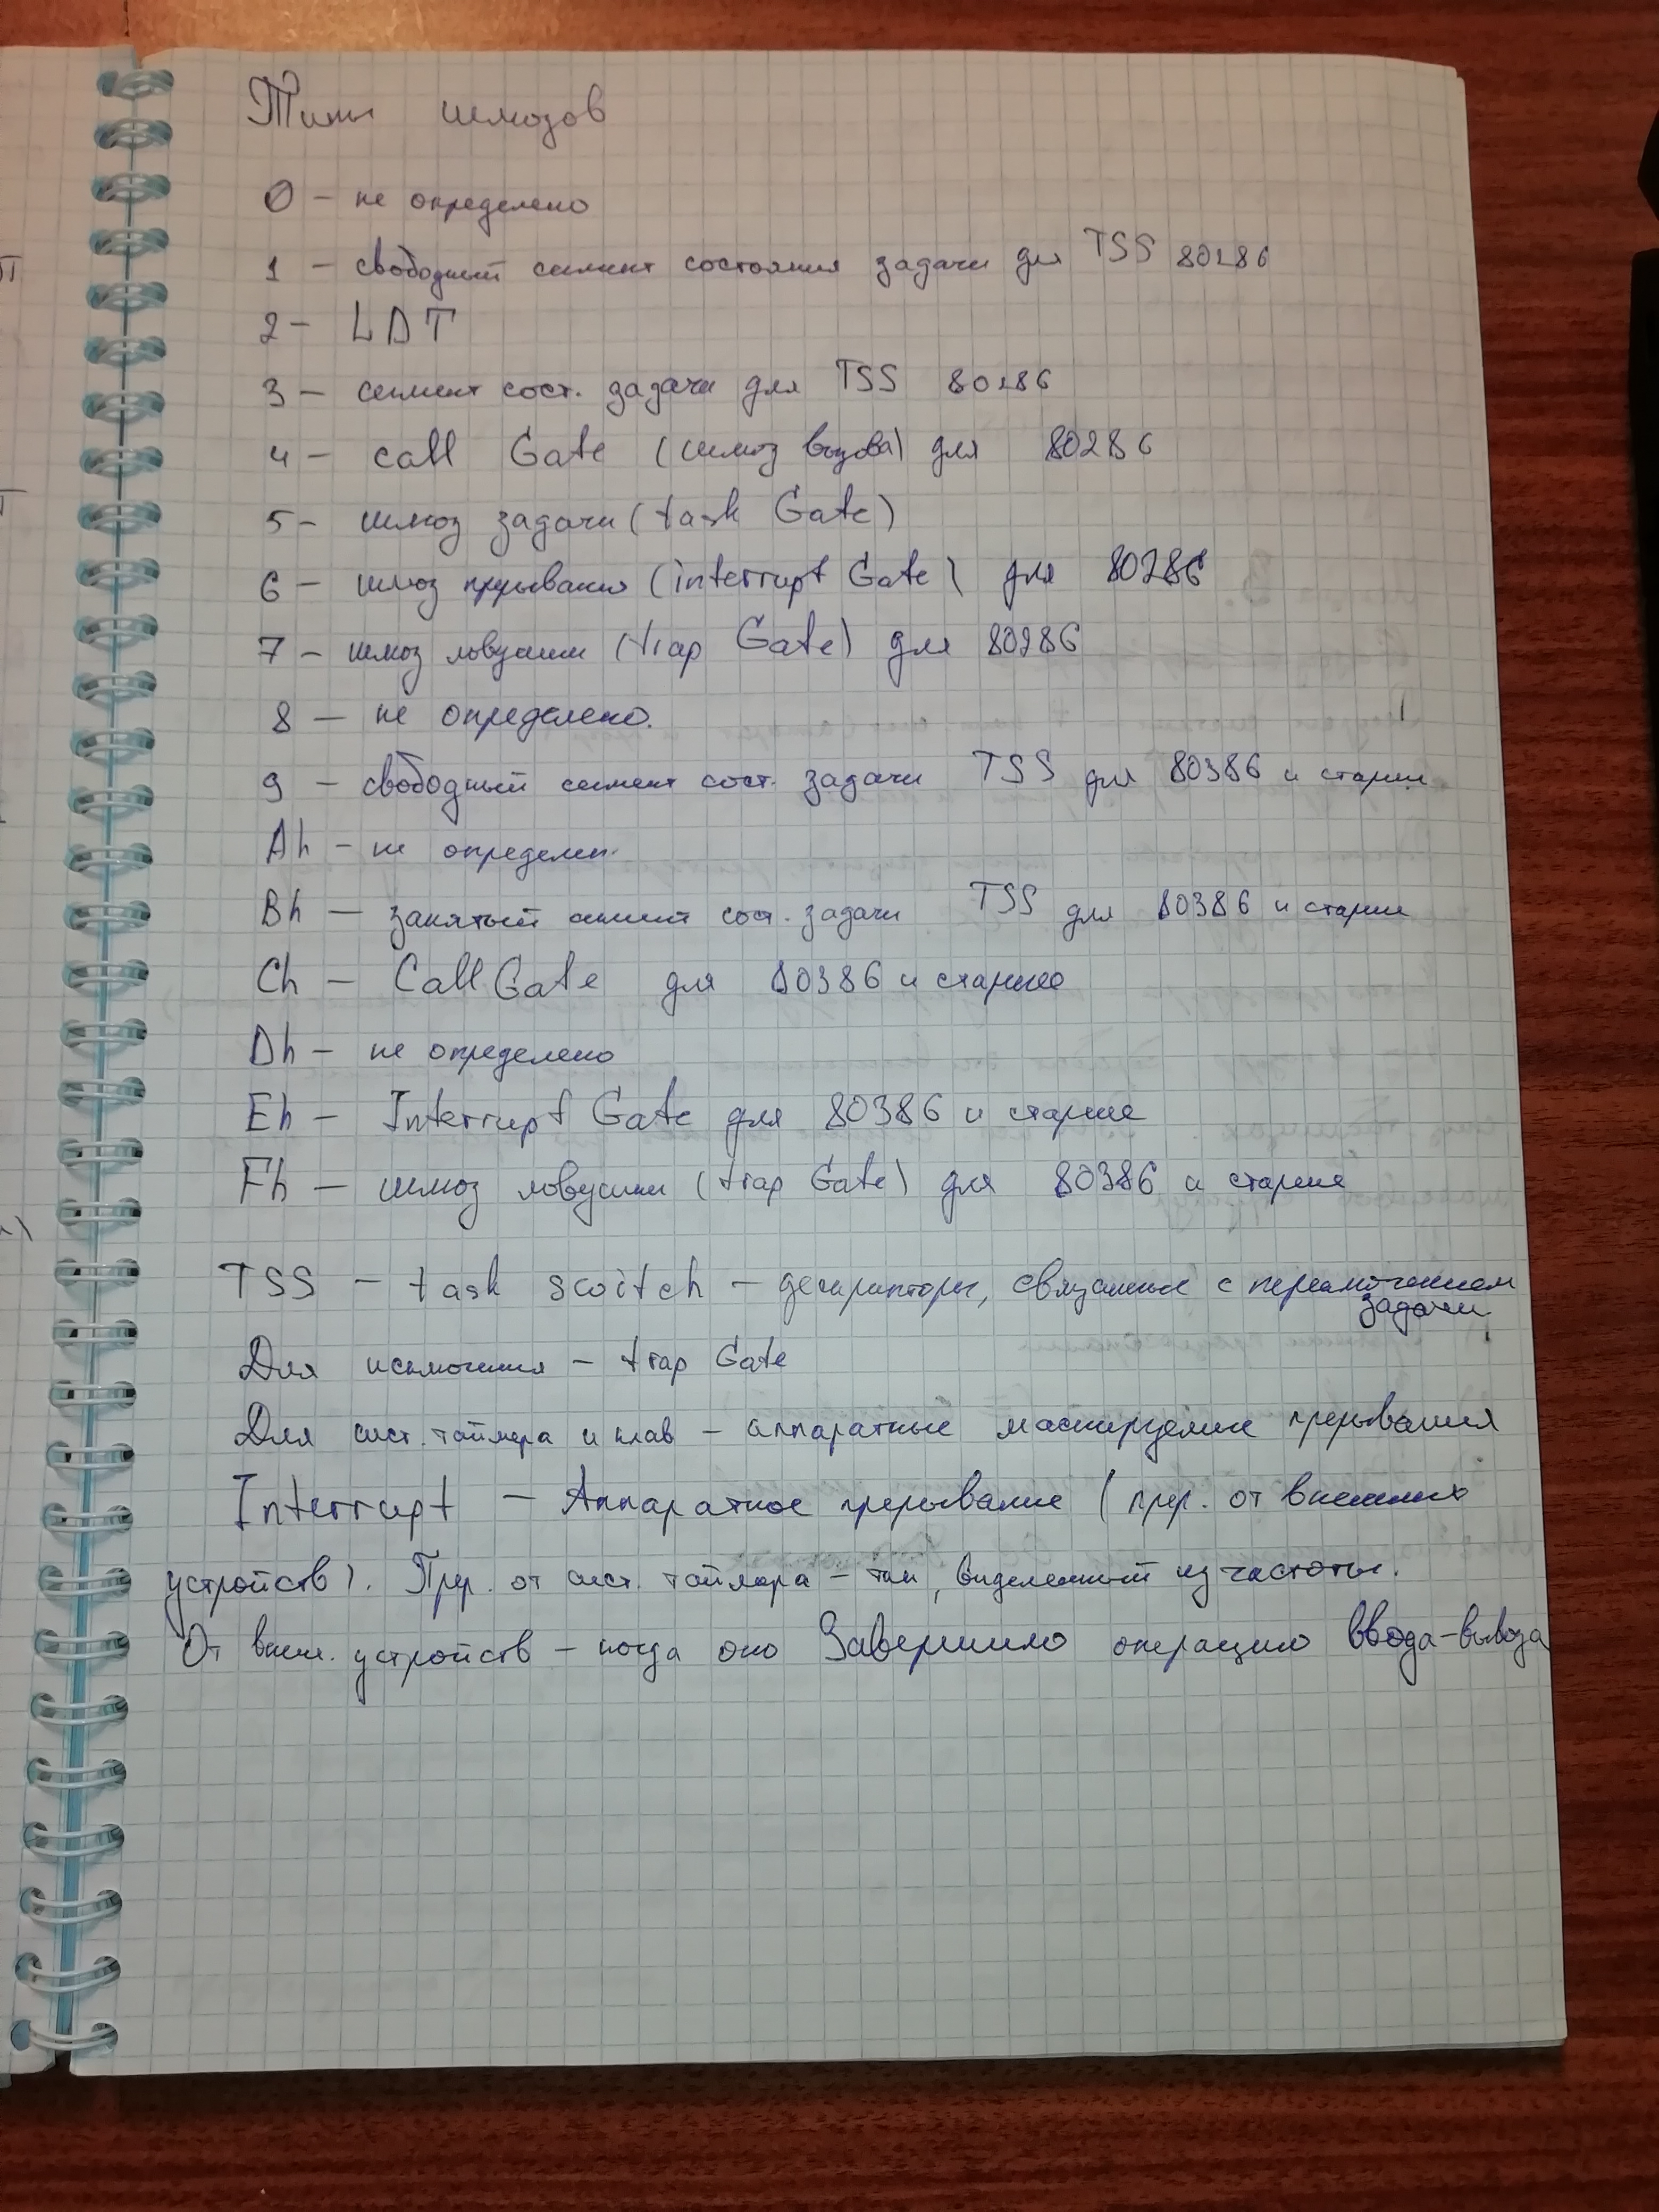 Типы шлюзов
0 – не определено
1 – свободный сегмент состояния задачи для TSS 80286
2 – LDT
3 – сегмент сост. задачи для TSS 80286
4 – call Gate (шлюз вызова) для 80286
5 – шлюз задачи (task Gate)
6 – шлюз прерывания (interrupt Gate) для 80286
7 – шлюз ловушки (trap Gate) для 80286
8 – не определено.
9 – свободный сегмент сост. задачи TSS для 80386 и старше
Ah – не определен.
Bh – занятый сегмент сост. задачи TSS для 80386 и старше
Ch – Call Gate для 80386 и старшее
Dh – не определено
Eh – Interrupt Gate для 80386 и старше
Fh – шлюз ловушки (trap Gate) для 80386 и старше
TSS – task switch – дескрипторы, связанные с переключением
задачи
Для исключения – trap Gate
Для сист. таймера и клав – аппаратные маскируемые прерывания
Interrupt – Аппаратное прерывание (прер. от внешних
устройств). Прер. от сист. таймера – тик, выделенный из частоты.
От внеш. устройств – когда оно Завершило операцию ввода-вывода